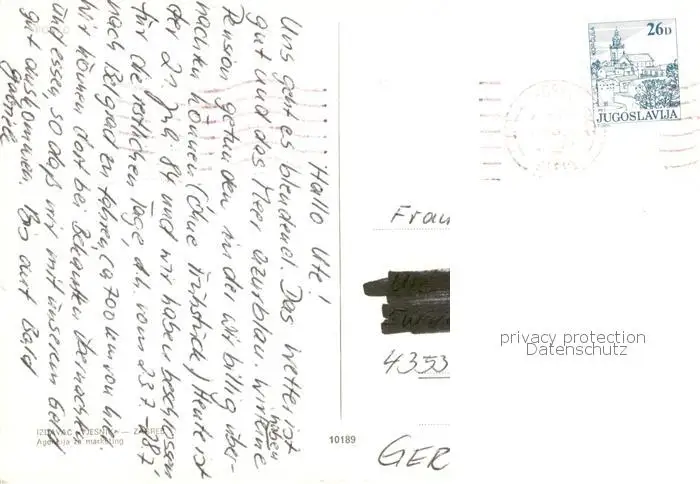 Hallo Ute!
Uns geht es blendend. Das Wetter ist
gut und das Meer azurblau. Wir haben eine
Pension gefunden in der wir billig über-
nachten können (Ohne Frühstück) Heute ist
der 21. Juli 84 und wir haben beschlossen
für die restlichen Tage, d.h. vom 23.7 - 28.7,
nach Belgrad zu fahren, ca 700 km von hier
Wir können dort bei Bekannten übernachten
und essen, so daß wir mit unserem Geld
gut auskommen. Bis dort Bald
Gabriele
IZDAVAČ »VJESNIK« — ZAGREB
Agencija za marketing
10189
26D
KORČULA
JUGOSLAVIJA
Frau
4353
GER
privacy protection
Datenschutz